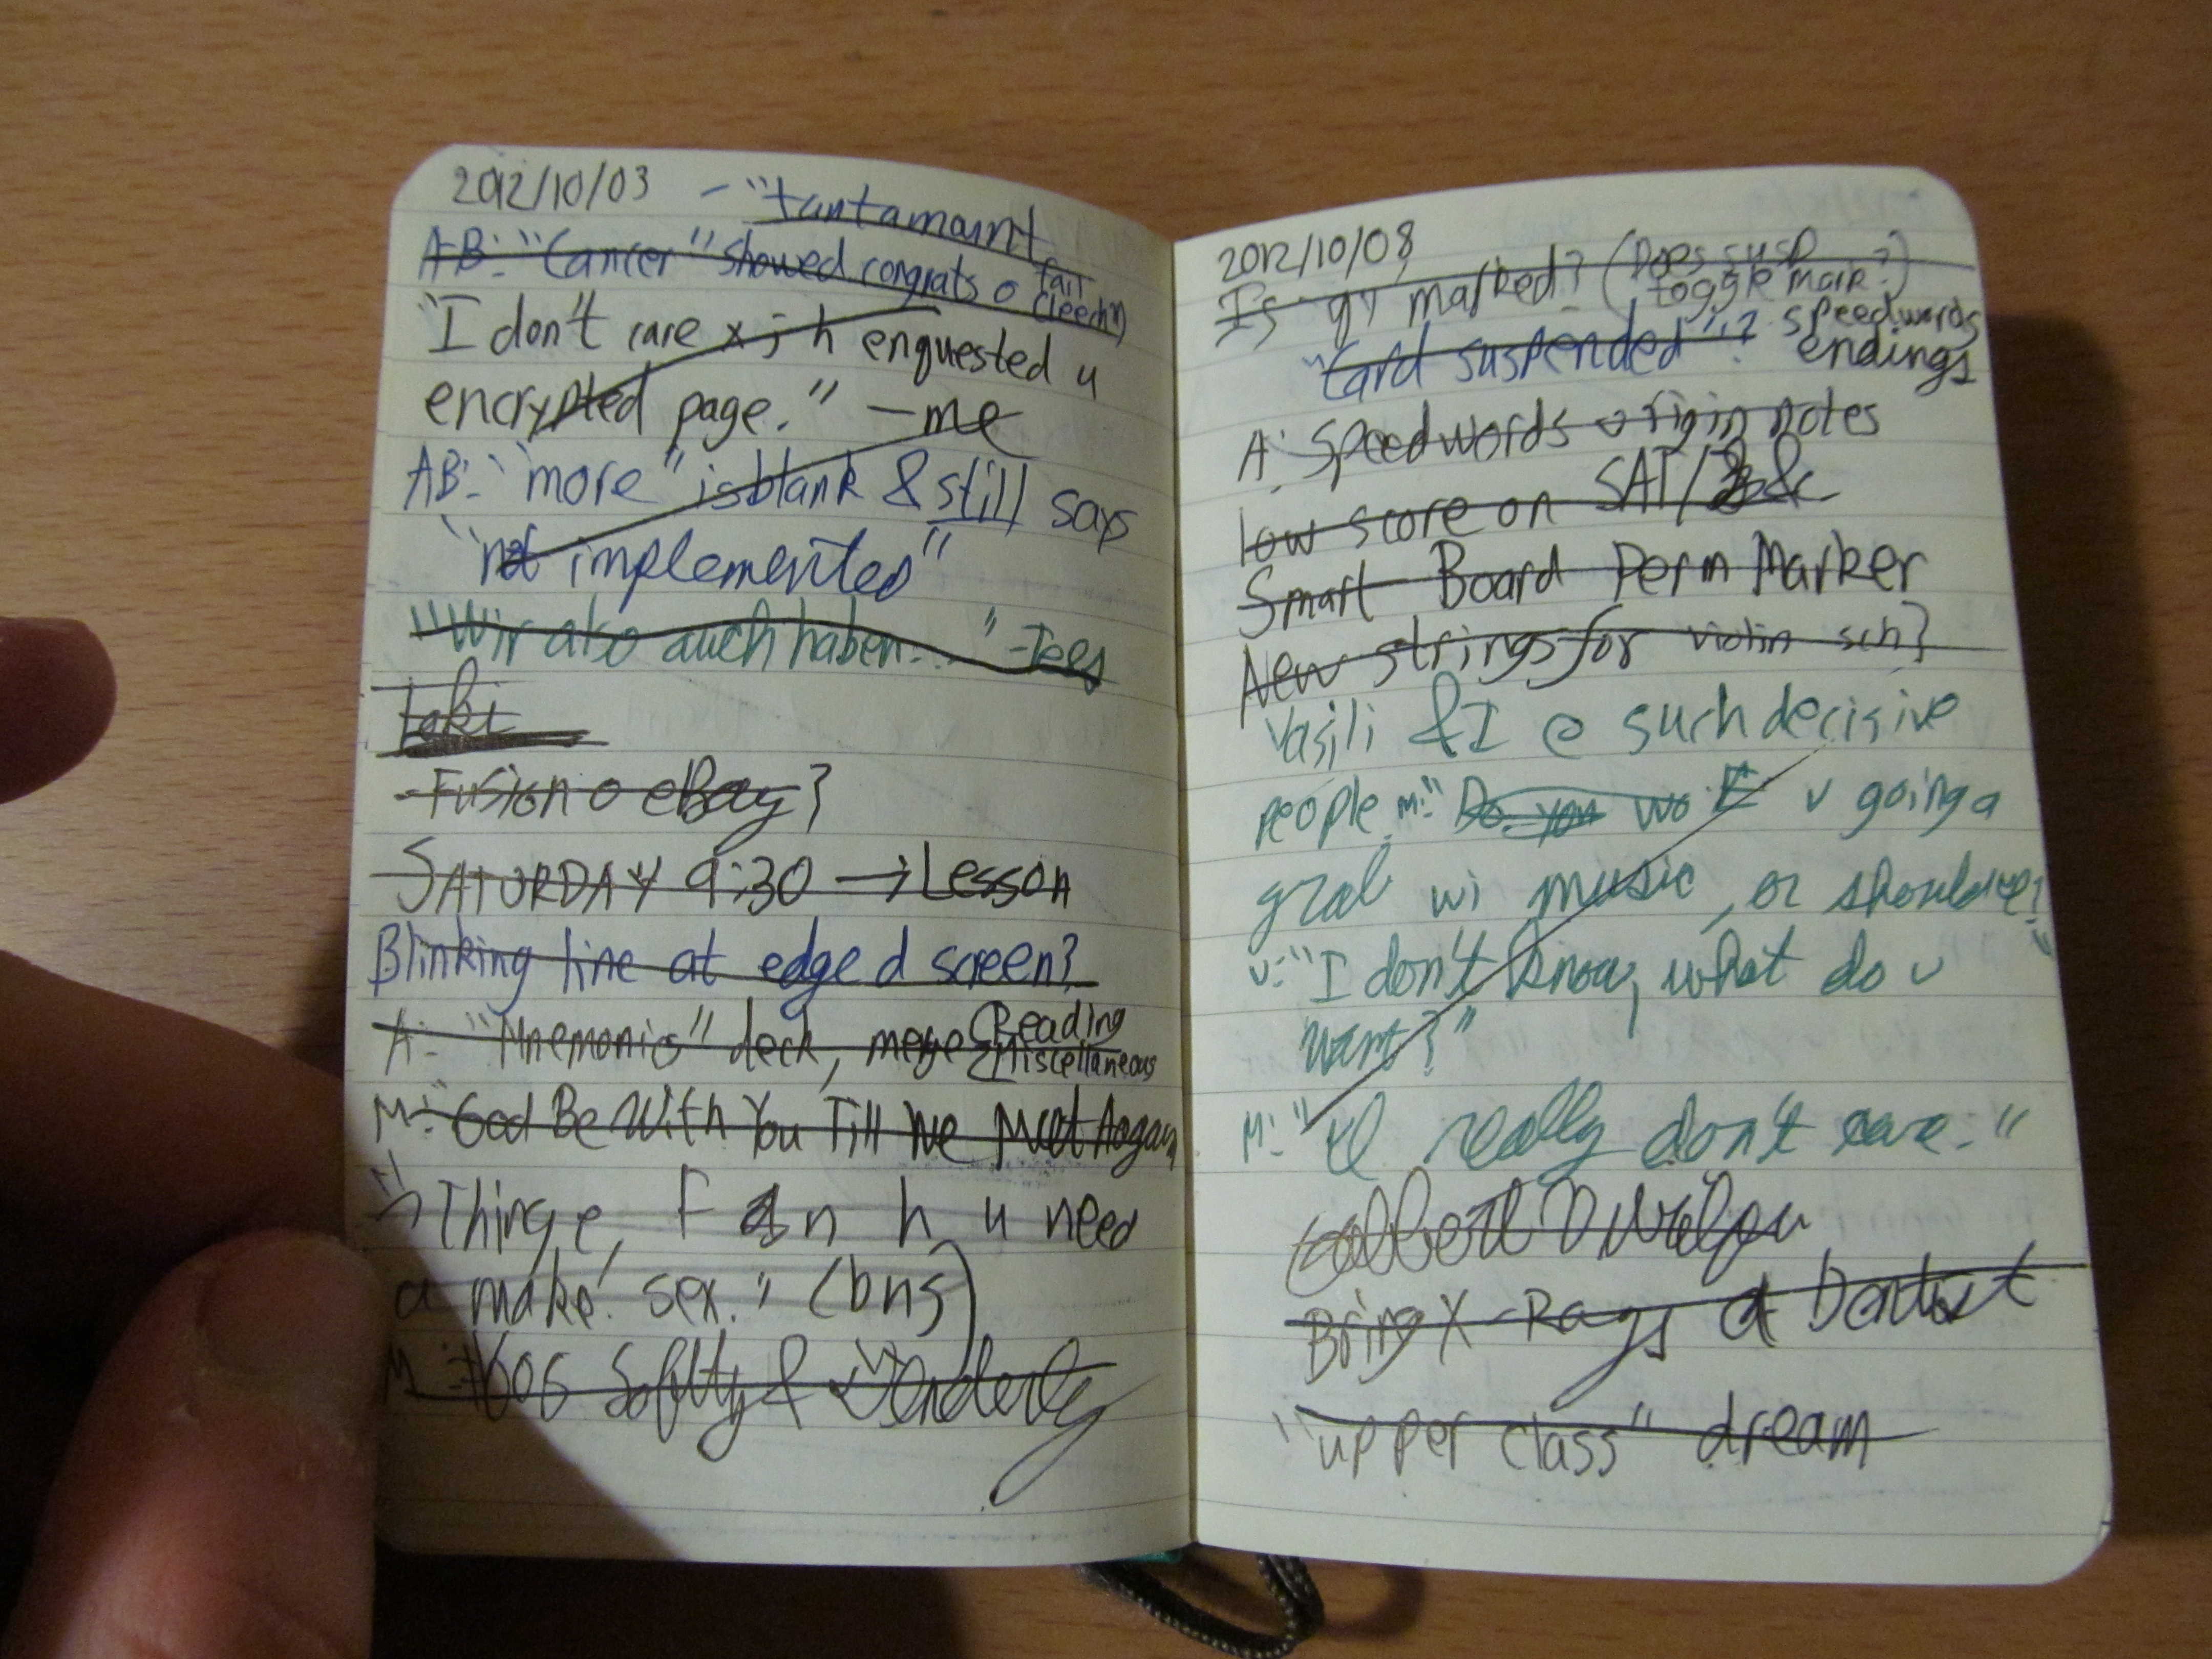 2012/10/03 - "tantamount
AB: "Cancer" showed congrats o fail
(leech)
"I don't care x j h enquested u
encrypted page." -me
AB: "more" is blank & still says
"not implemented"
"Wir also auch haben..."
Loki
-Fusion o eBay?
SATURDAY 9:30 → Lesson
Blinking line at edge d screen?
A: "Mnemonic" deck, merge Reading
Miscellaneous
M: God Be With You Till We Meet Aagain
"Thing e, F n h u need
a make! sex." (bns)
M: #606 Softly & Tenderly
2012/10/08
Is marked? (Does susp
toggle mark?)
"Card suspended"? speedwords
endings
A: Speedwords origin notes
low score on SAT/
Smart Board Perm Marker
New strings for violin sch?
Vasili & I e such decisive
people. M: "Do you wo v going a
grab wi music, or should we?"
V: "I don't know, what do v
want?"
M: "I really don't care."
Bring X-Rays a Dentist
"upper class" dream